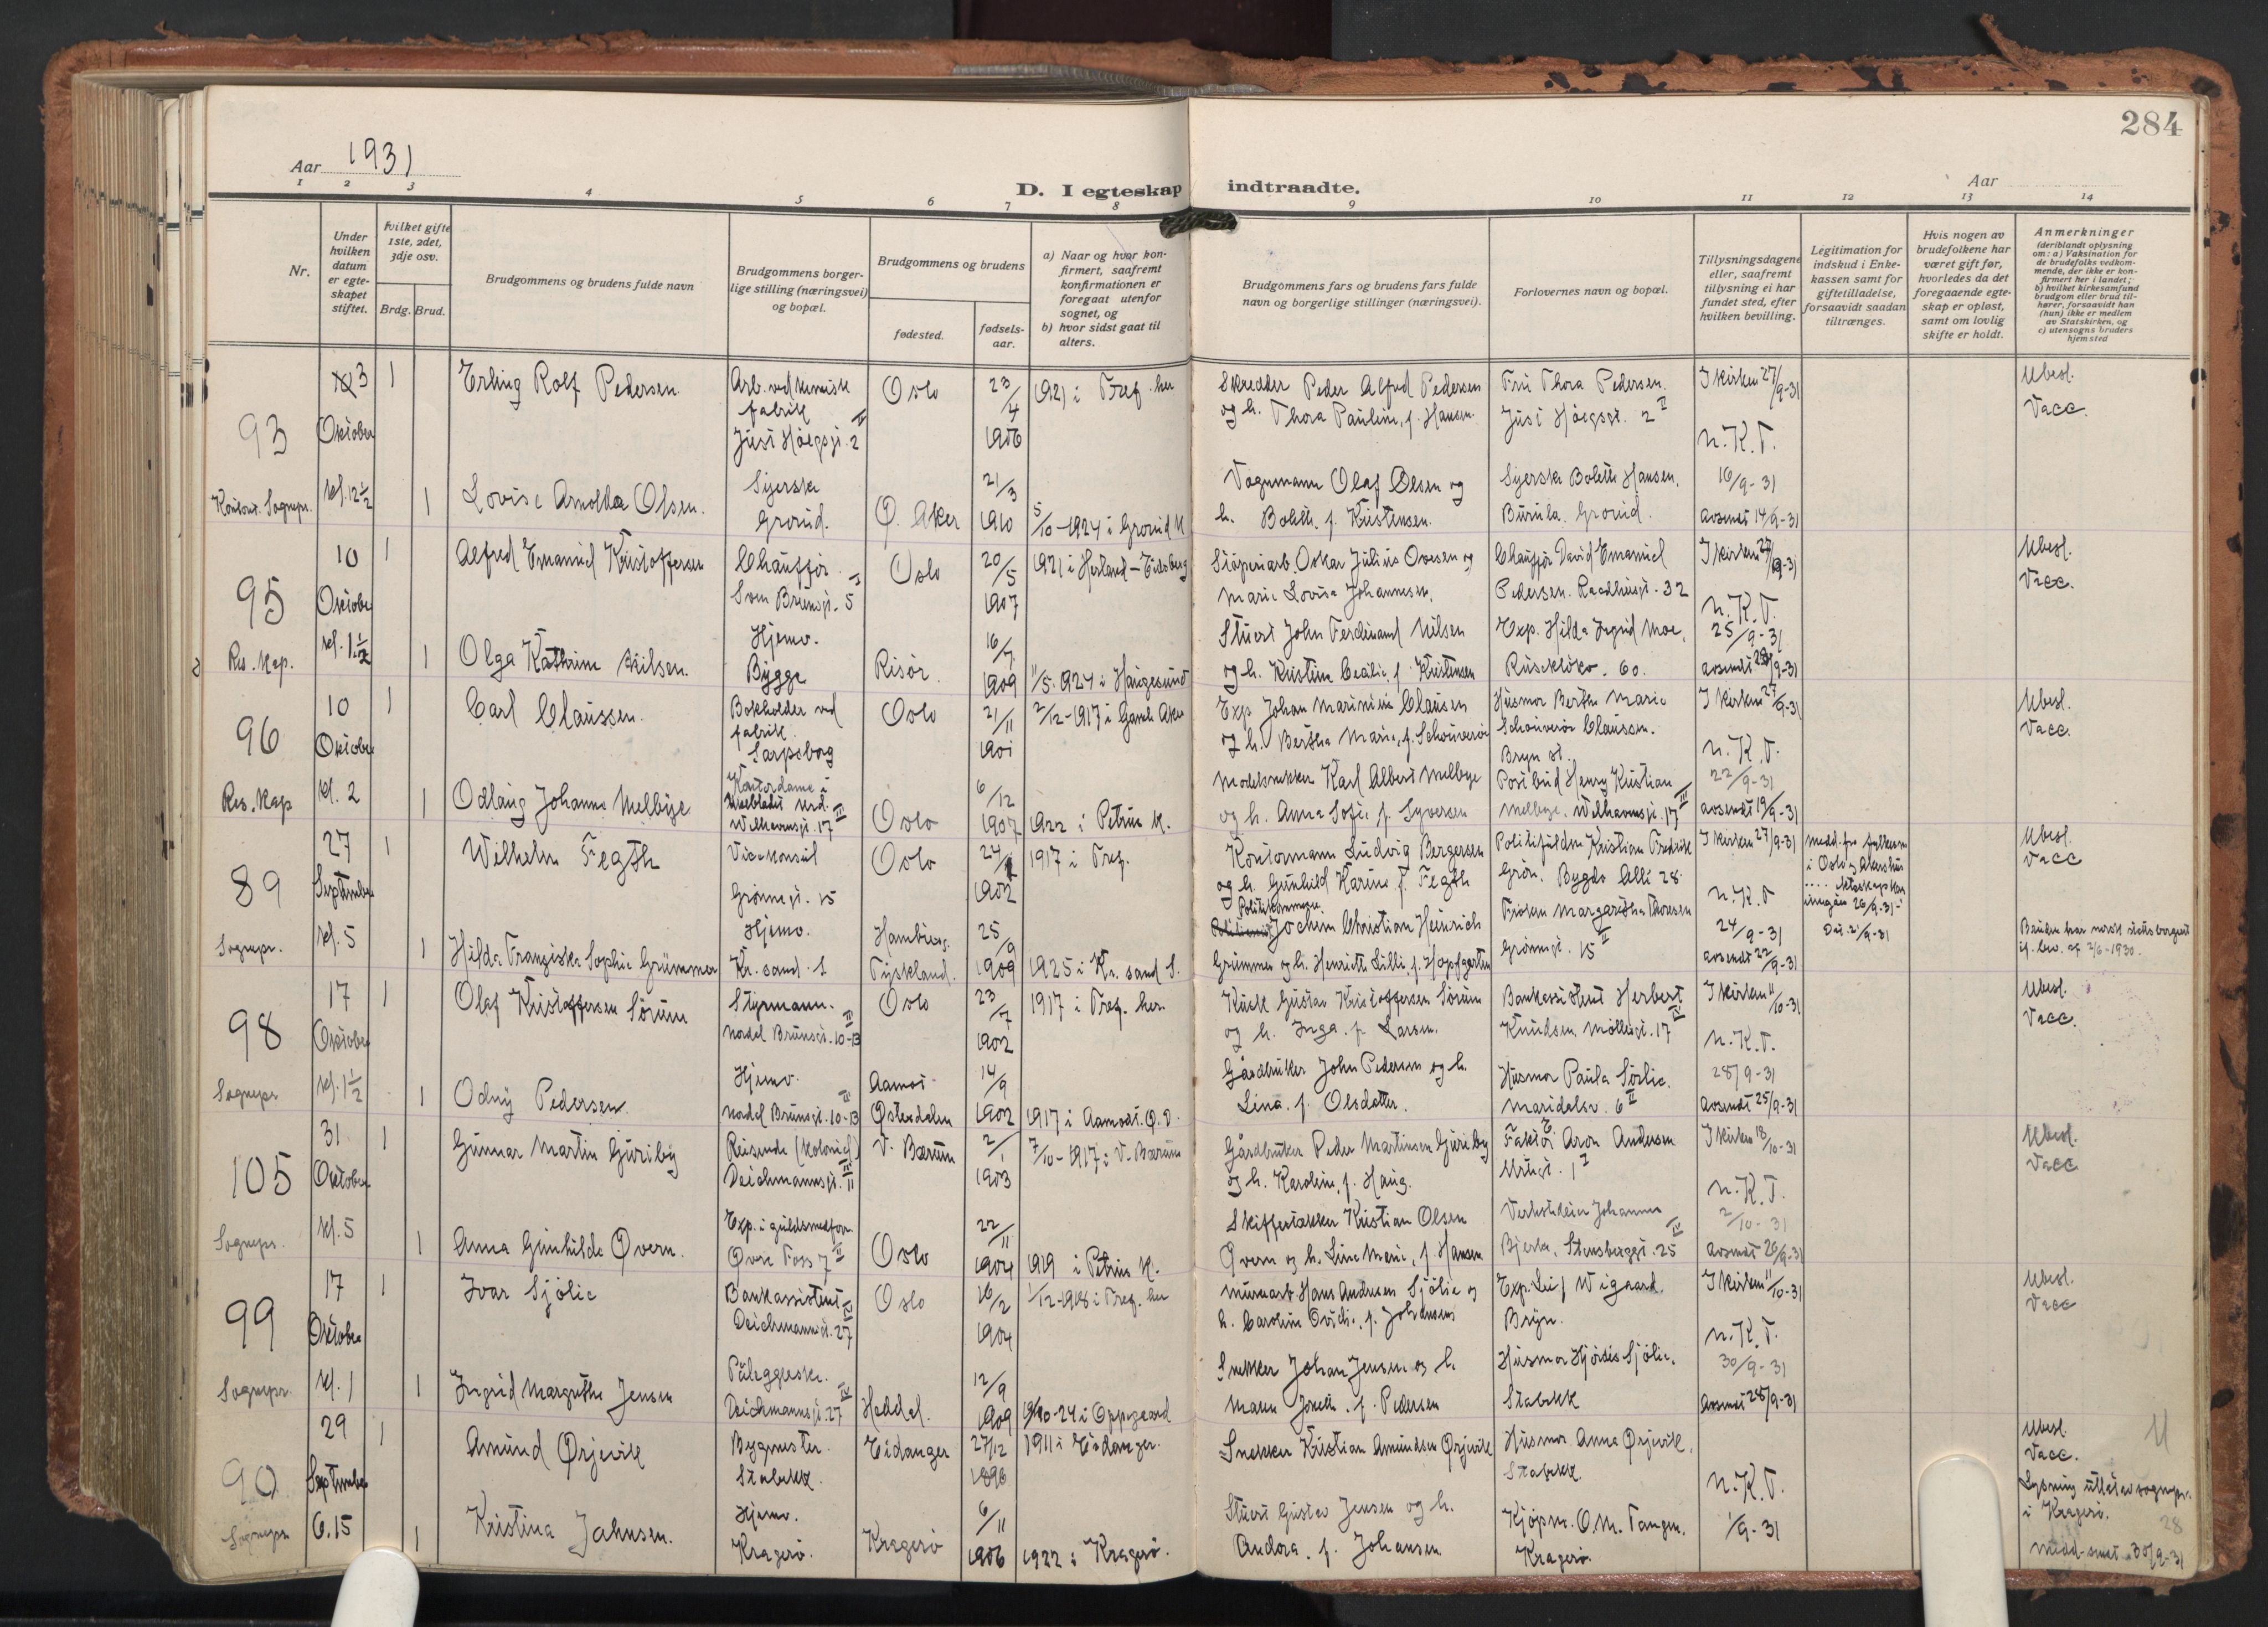 284
Aar 1931
D. I egteskap indtraadte.
Aar
1 2 3 4 5 6 7 8 9 10 11 12 13 14
Nr.
Under hvilken datum er egteskapet stiftet.
Hvilket gifte 1ste, 2det, 3dje osv.
Brdg. Brud.
Brudgommens og brudens fulde navn
Brudgommens borgerlige stilling (næringsvei) og bopæl.
Brudgommens og brudens
fødested.
fødselsaar.
a) Naar og hvor konfirmert, saafremt konfirmationen er foregaat utenfor sognet, og
b) hvor sidst gaat til alters.
Brudgommens fars og brudens fars fulde navn og borgerlige stillinger (næringsvei).
Forlovernes navn og bopæl.
Tillysningsdagene eller, saafremt tillysning ei har fundet sted, efter hvilken bevilling.
Legitimation for indskud i Enkekassen samt for giftetilladelse, forsaavidt saadan tiltrænges.
Hvis nogen av brudefolkene har været gift før, hvorledes da det foregaaende egteskap er opløst, samt om lovlig skifte er holdt.
Anmerkninger
(deriblandt oplysning om: a) Vaksination for de brudefolks vedkommende, der ikke er konfirmert her i landet;
b) hvilket kirkesamfund brudgom eller brud tilhører, forsaavidt han (hun) ikke er medlem av Statskirken, og
c) utensogns bruders hjemsted
93 3 Oktober 1 Erling Rolf Pedersen. Arb. ved kemisk fabrik Just Høegsgt. 2 II Oslo 23/4 1906 1921 i Tref. her Skredder Peder Alfred Pedersen og h. Thora Pauline, f. Hansen. Fru Thora Pedersen. Just Høegsgt. 2 II I kirken 27/9-31 n.K.T. Ubesl. Vacc.
Sognepr. kl. 12 1/2 1 Lovise Arnolda Olsen. Syerske Grorud. Ø. Aker 21/3 1910 5/10-1924 i Grorud K Vognmann Olaf Olsen og h. Bolette, f. Kristensen. Syerske Bolette Hansen. Grorud. 16/9-31 avsendt 14/9-31
95 10 Oktober 1 Alfred Emanuel Kristoffersen Chauffør. Sven Brunsgt. 5 I Oslo 20/5 1907 1921 i Herland - Eidsberg Støperiarb. Oskar Julius Ovesen og Marie Lovise Johannesen. Chauffør David Emanuel Pedersen. Raadhusgt. 32 I kirken 27/9-31 n.K.T. Ubesl. Vacc.
Res. Kap. kl. 1 1/2 1 Olga Kathrine Nilsen. Hjemv. Bygge Risør. 16/7 1909 11/5-1924 i Haugesund Stuert John Ferdinand Nilsen og h. Kristine Cecilie, f. Kristensen Exp. Hilda Ingrid Moe, Ruseløkv. 60. 25/9-31 avsendt 23/9-31
96 10 Oktober 1 Carl Claussen. Bokholder ved fabrik. Sarpsborg Oslo 21/11 1901 2/12-1917 i Gamle Aker Exp. Johan Marinius Clausen og h. Bertha Marie, f. Schouverøe Husmor Berthe Marie Schouverøe Claussen. Bryn st. I kirken 27/9-31 n.K.T. Ubesl. Vacc.
Res. Kap kl. 2 1 Odlaug Johanne Melbye Kontordame i Welhavensgt. 17 III Oslo 6/12 1907 1922 i Petrus K. Modelsnekker Karl Albert Melbye og h. Anna Sofie f. Syversen Postbud Henry Kristian Melbye. Welhavensgt. 17 III 22/9-31 avsendt 19/9-31
89 27 September 1 Wilhelm Fegth Vicekonsul Grønnegt. 15 Oslo 1902 1917 i Tref. Kontormann Ludvig Bergersen og h. Gunhild Karine f. Fegth Politifuldm Kristian Fredrik Grøn. Bygdø Allé 28. I kirken 27/9-31 n.K.T medd. fra fylkesm i Oslo og Akershus .... inngåes 26/9-31 Ubesl. Vacc
Sognepr. kl. 5 1 Hilda Franziska Sophie Grümmer Hjemv. Kr.sand S Hamburg. Tyskland. 25/9 1909 1925 i Kr. sand S. Politikommissær Jochim Christian Heinrich Grümmer og h. Henriette Lilli, f. Hopfgarten Frøken Margaretha Thoresen Grønnegt. 15 II 24/9-31 avsendt 22/9-31 Dat. 21/9-31 Bruden har norsk statsborgerrett if. lov. af 2/6-1930.
98 17 Oktober 1 Olaf Kristoffersen Sørum Styrmann. Nordal Brunsgt. 10-13 III Oslo 23/7 1902 1917 i Tref. her Kusk Gustav Kristoffersen Sørum og h. Inga f. Larsen. Bankassistent Herbert Knudsen Møllergt. 17 IV I kirken 11/10-31 n.K.T. Ubesl. Vacc.
Sognepr kl. 1 1/2 1 Odny Pedersen. Hjemv. Nordal Brunsgt. 10-13 III Aamot Østerdalen 14/9 1902 1917 i Aamodt. Ø.D. Gårdbruker John Pedersen og h. Lina. f. Olsdatter. Husmor Paula Sørlie. Maridalsv. 6 II 28/9-31 avsendt 25/9-31
105 31 Oktober 1 Gunnar Martin Guriby Reisende (kolonial) Deichmannsgt. 11 III V. Bærum 2/1 1903 7/10-1917 i V. Bærum Gårdbruker Peder Martinsen Guriby og h. Karoline, f. Haug. Faktor Aron Andersen Urtegt. 1 I I kirken 18/10-31 n.K.T. Ubesl. Vacc
Sognepr. kl. 5 1 Anna Gunhilde Øvern. Exp. i guldsmedforr. Øvre Foss 7 II Oslo 22/11 1904 1919 i Petrus K. Skiffertekker Kristian Olsen Øvern og h. Line Marie, f. Hansen Johannes Bjerke, Stensberggt. 25 IV 2/10-31 avsendt 26/9-31
99 17 Oktober 1 Ivar Sjølie Bankassistent Deichmannsgt. 27 IV Oslo 16/2 1904 1/12-1918 i Tref. her Murerarb Hans Andresen Sjølie og h. Caroline f. Johansen Exp. Leif Wigaard. Bryn. I kirken 11/10-31 n.K.T. Ubesl. Vacc
Sognepr. kl. 1 1 Ingrid Margrethe Jensen Påleggerske. Deichmannsgt. 27 IV Heddal. 12/9 1909 1924 i Oppegaard Snekker Johan Jensen og h. Maren f. Pedersen Husmor Hjørdis Sjølie. Stabekk 30/9-31 Avsendt 28/9-31
90 29 September 1 Amund Ørjevik Bygmester. Stabekk. Eidanger 27/12 1896 1911 i Eidanger. Snekker Kristian Amundsen Ørjevik Husmor Anna Ørjevik, Stabekk n.K.T. Ubesl. Vacc. Lysning utført av sognepr. i Kragerø. U
Sognepr 6.15 1 Kristina Jahnsen. Hjemv. Kragerø. Kragerø 6/11 1906 1922 i Kragerø. Stuert Gustav Jensen og h. Andora. f. Johansen Kjøpm. O.M. Tangen. Kragerø 1/9-31 medd. sendt 30/9-31 28